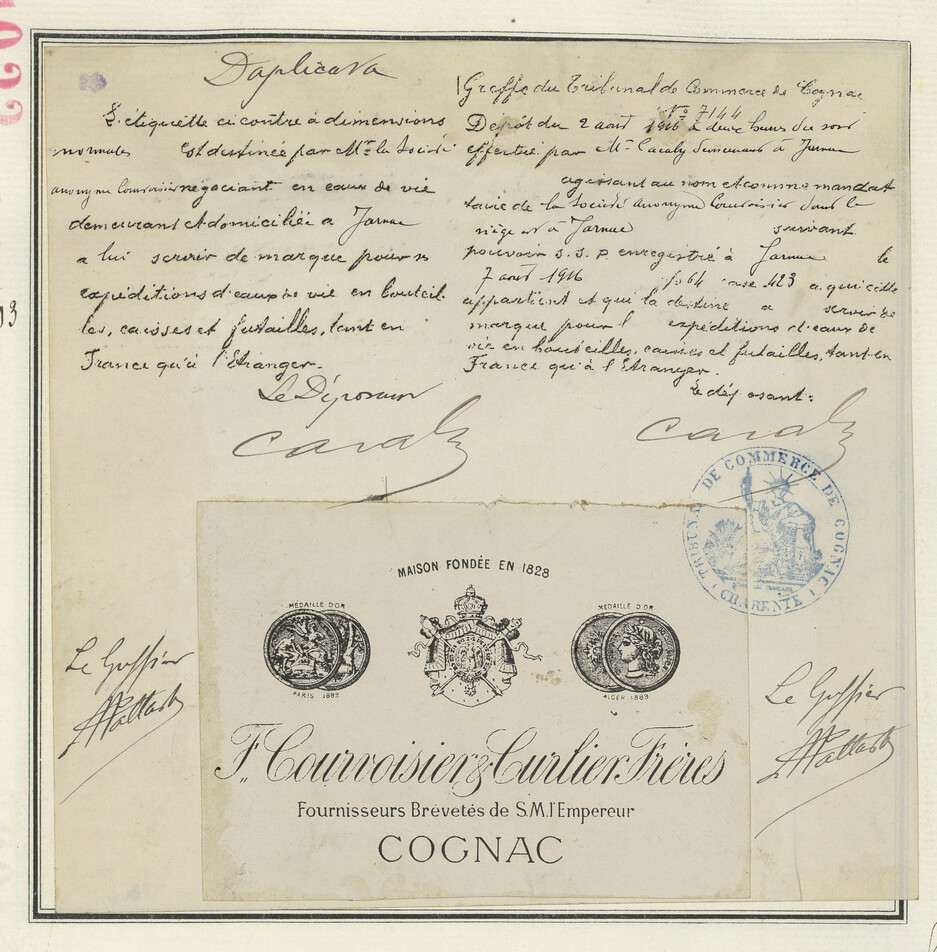 Duplicata
L'étiquette ci contre à dimensions
normales est destinée par Mr la Société
anonyme Courvoisier négociant en eaux de vie
demeurant et domiciliée à Jarnac
a lui servir de marque pour
expéditions d'eaux de vie en bouteil
les, caisses et futailles, tant en
France qu'à l'Etranger.
Le Déposant
Greffe du Tribunal de Commerce de Cognac
No 7144
Dépôt du 2 aout 1916 à deux heures du soir
effectué par Mr à Jarnac
agissant au nom et comme mandat
taire de la Société anonyme Courvoisier dont le
siège est à Jarnac suivant
pouvoir S. S. P. enregistré à Jarnac le
7 aout 1916 fo 64 case 423 a qui cette
appartient et qui la destine a servir de
marque pour l expéditions d'eaux de
vie en bouteilles, caisses et futailles, tant en
France qu'à l'Etranger.
Le déposant:
TRIBUNAL DE COMMERCE DE COGNAC
CHARENTE
MAISON FONDÉE EN 1828
MÉDAILLE D'OR
PARIS 1889
MEDAILLE D'OR
ALGER 1889
F. Courvoisier & Curlier Frères
Fournisseurs Brevetés de S.M. l'Empereur
COGNAC
Le Greffier
Le Greffier